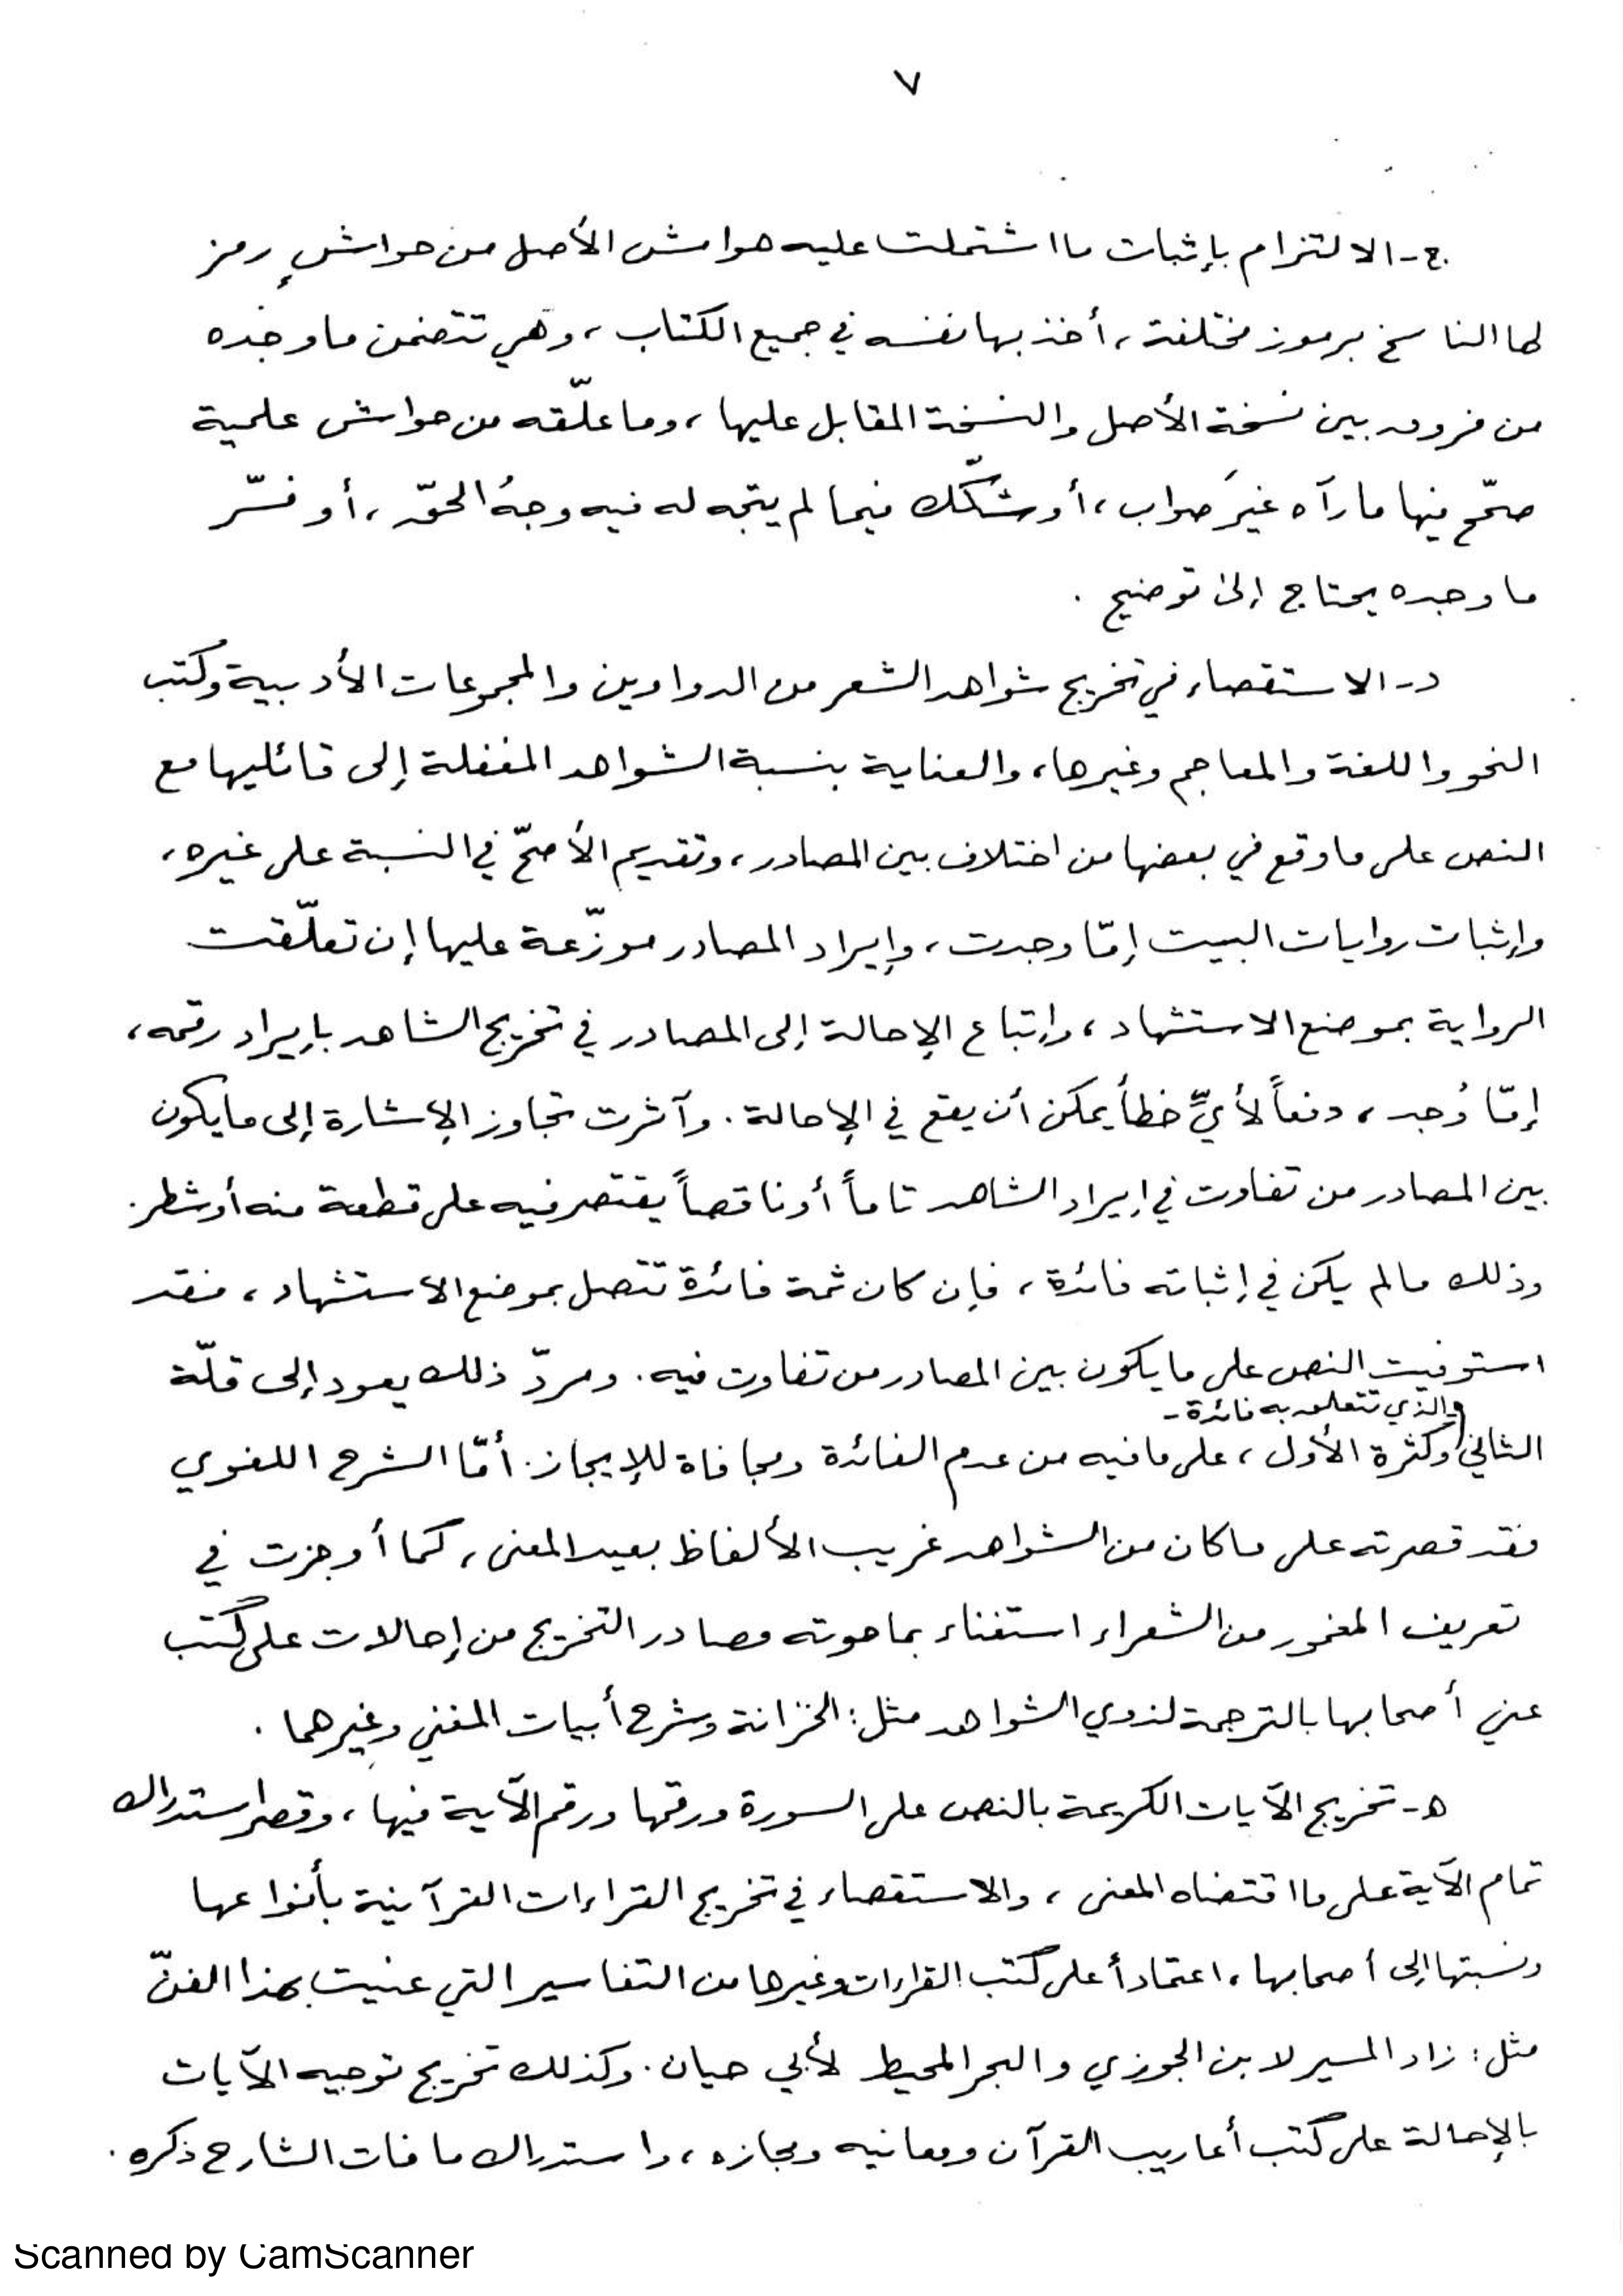 ٧
ج- الالتزام بإثبات ما اشتملت عليه هوامش الأصل من حواشٍ رمز
لها الناسخ برموز مختلفة، أخذ بها نفسه في جميع الكتاب، وهي تتضمن ما وجده
من فروق بين نسخة الأصل والنسخة المقابل عليها، وما علّقه من حواش علمية
صحّح فيها ما رآه غيرَ صواب، أو شكّك فيما لم يتجه له فيه وجهُ الحقّ، أو فسّر
ما وجده يحتاج إلى توضيح .
د- الاستقصاء في تخريج شواهد الشعر من الدواوين والمجموعات الأدبية وكتب
النحو واللغة والمعاجم وغيرها، والعناية بنسبة الشواهد المغفلة إلى قائليها مع
النص على ما وقع في بعضها من اختلاف بين المصادر، وتقديم الأصحّ في النسبة على غيره،
وإثبات روايات البيت إمّا وجدت، وإيراد المصادر موزّعة عليها إن تعلّقت
الرواية بموضع الاستشهاد، وإتباع الإحالة إلى المصادر في تخريج الشاهد بإيراد رقمه،
إمّا وُجد، دفعاً لأيِّ خطأ يمكن أن يقع في الإحالة. وآثرت تجاوز الإشارة إلى ما يكون
بين المصادر من تفاوت في إيراد الشاهد تاماً أو ناقصاً يقتصر فيه على قطعة منه أو شطر.
وذلك مالم يكن في إثباته فائدة، فإن كان ثمة فائدة تتصل بموضع الاستشهاد، فقد
استوفيت النص على ما يكون بين المصادر من تفاوت فيه. ومردّ ذلك يعود إلى قلّة
والذي تتعلق به فائدة -
الثاني وكثرة الأول، على ما فيه من عدم الفائدة ومجافاة للإيجاز. أمّا الشرح اللغوي
فقد قصرته على ما كان من الشواهد غريب الألفاظ بعيد المعنى، كما أوجزت في
تعريف المغمور من الشعراء استغناء بما حوته مصادر التخريج من إحالات على كتب
عني أصحابها بالترجمة لذوي الشواهد مثل: الخزانة وشرح أبيات المغني وغيرهما .
ه- تخريج الآيات الكريمة بالنص على السورة ورقمها ورقم الآية فيها، وقصر استدراك
تمام الآية على ما اقتضاه المعنى، والاستقصاء في تخريج القراءات القرآنية بأنواعها
ونسبتها إلى أصحابها، اعتماداً على كتب القراءات وغيرها من التفاسير التي عنيت بهذا الفنّ
مثل: زاد المسير لابن الجوزي والبحر المحيط لأبي حيان. وكذلك تخريج توجيه الآيات
بالإحالة على كتب أعاريب القرآن ومعانيه ومجازه، واستدراك ما فات الشارح ذكره.
Scanned by CamScanner